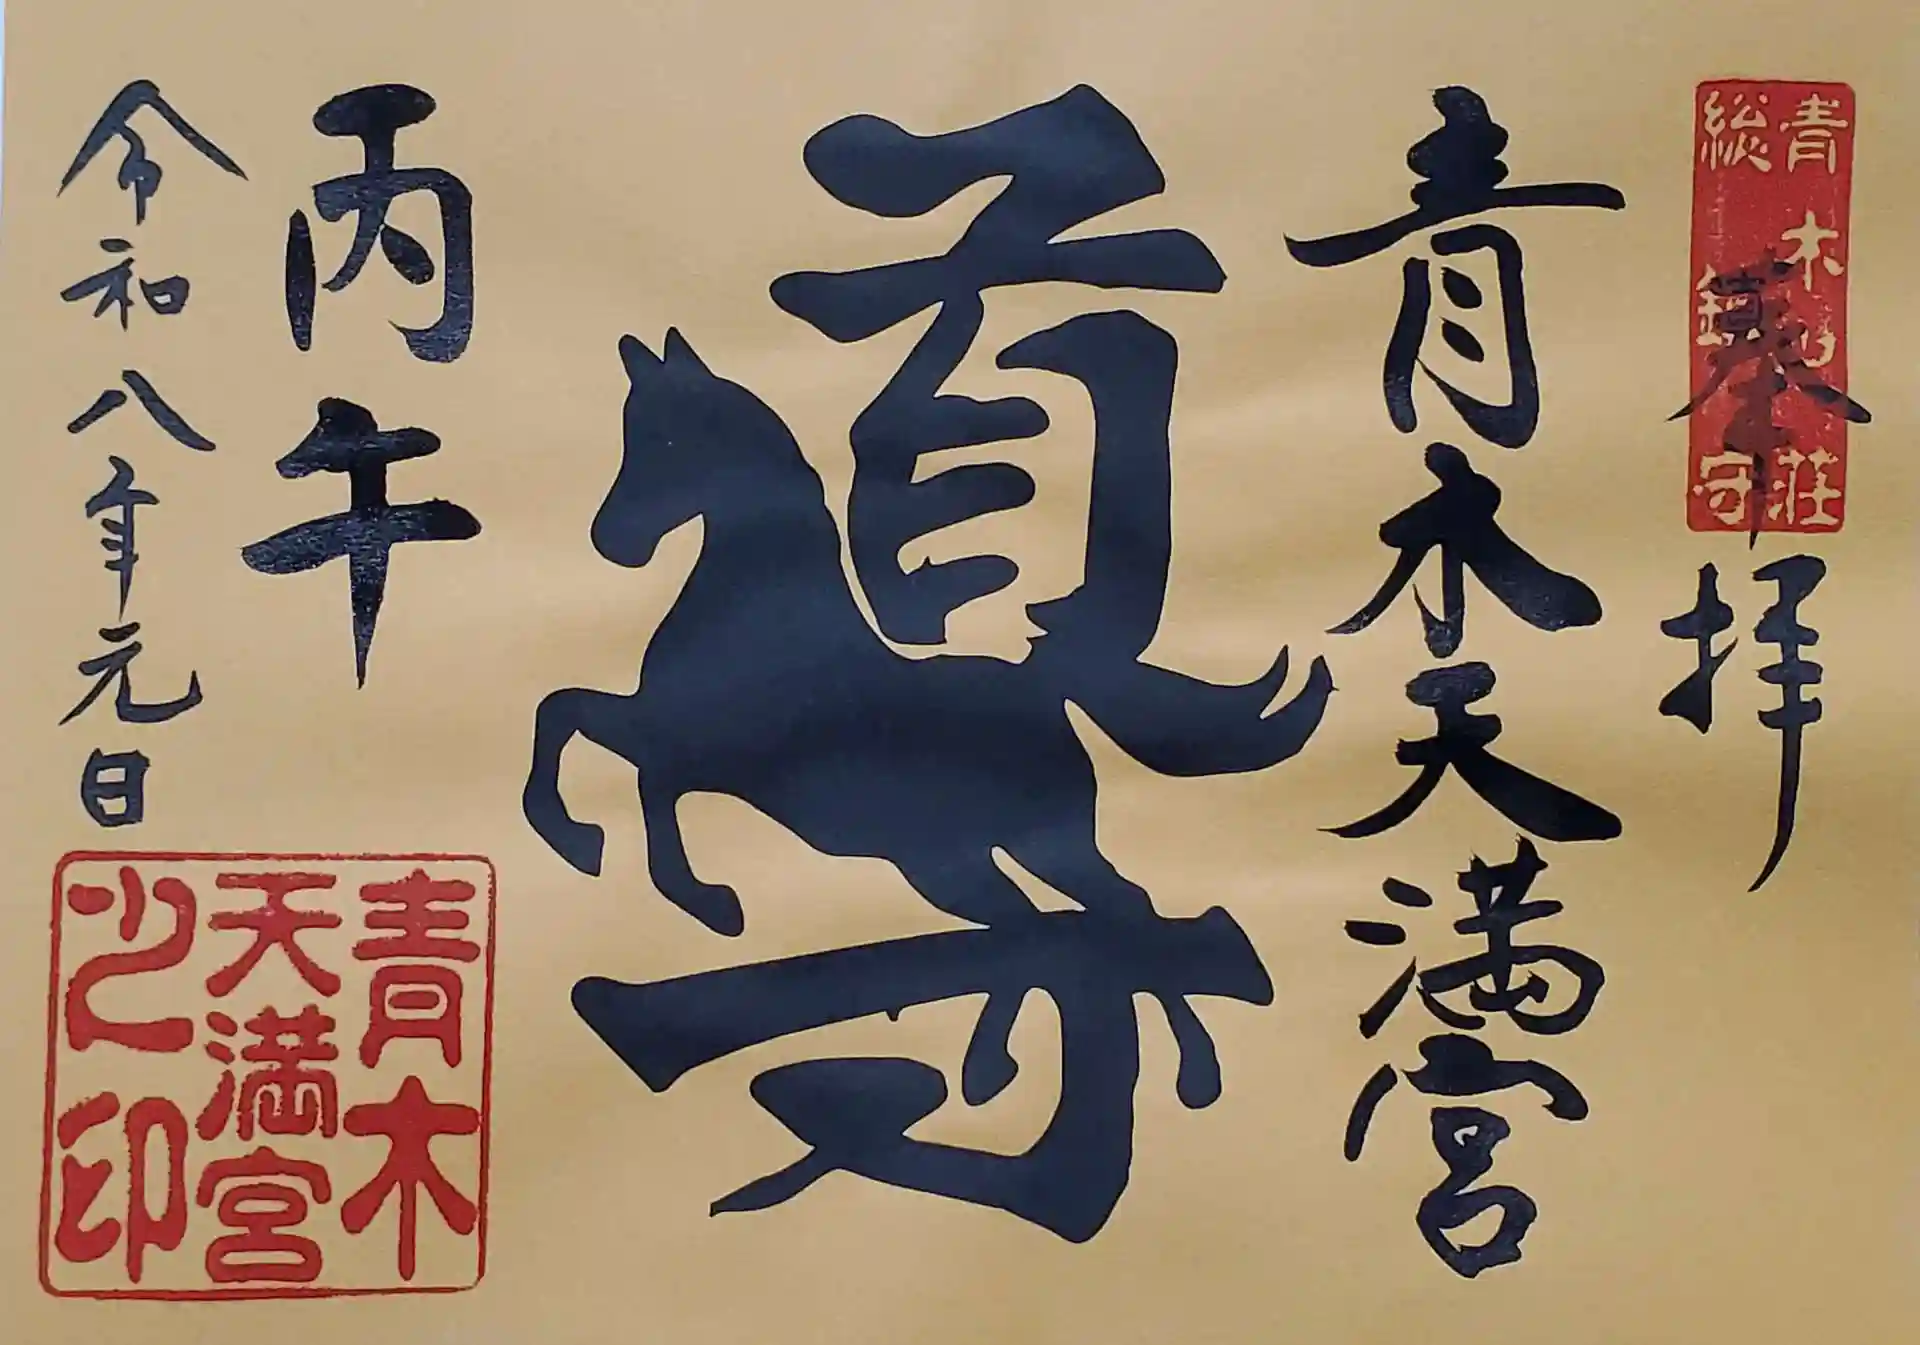 奉拝
青木乃荘
総鎮守
青木天満宮
丙午
令和八年元日
青木
天満宮
之印